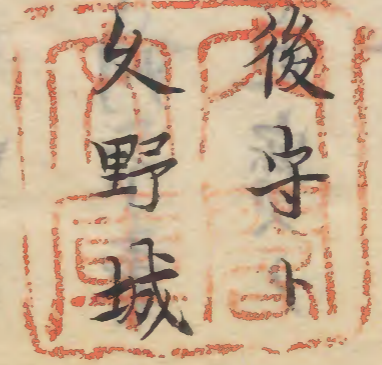 後守ト
久野城